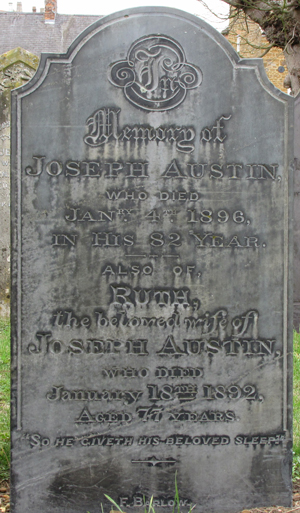 In
Memory of
JOSEPH AUSTIN,
WHO DIED
JANRY 4TH 1896,
IN HIS 82 YEAR.
ALSO OF,
RUTH,
the beloved wife of
JOSEPH AUSTIN,
WHO DIED
January 18TH 1892,
AGED 77 YEARS.
"SO HE GIVETH HIS BELOVED SLEEP."
F. BARLOW